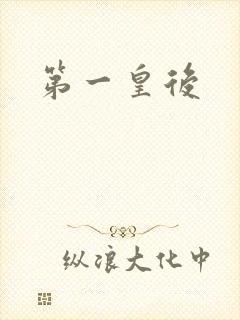 第一皇後
纵浪大化中